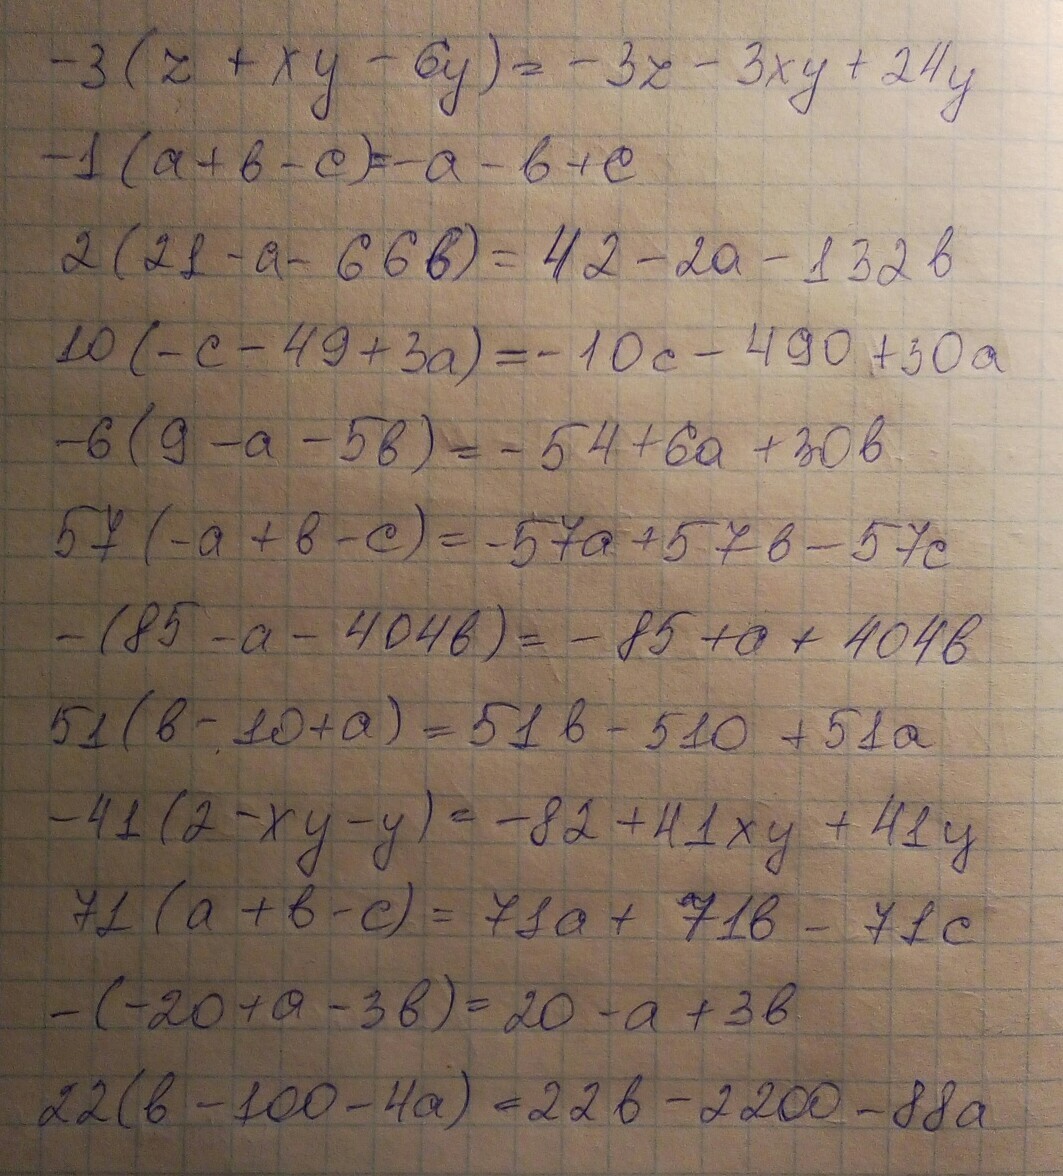 -3(z + xy - 6y) = -3z - 3xy + 24y
-1(a + b - c) = -a - b + c
2(21 - a - 66b) = 42 - 2a - 132b
10(-c - 49 + 3a) = -10c - 490 + 30a
-6(9 - a - 5b) = -54 + 6a + 30b
57(-a + b - c) = -57a + 57b - 57c
-(85 - a - 404b) = -85 + a + 404b
51(b - 10 + a) = 51b - 510 + 51a
-41(2 - xy - y) = -82 + 41xy + 41y
71(a + b - c) = 71a + 71b - 71c
-(-20 + a - 3b) = 20 - a + 3b
22(b - 100 - 4a) = 22b - 2200 - 88a